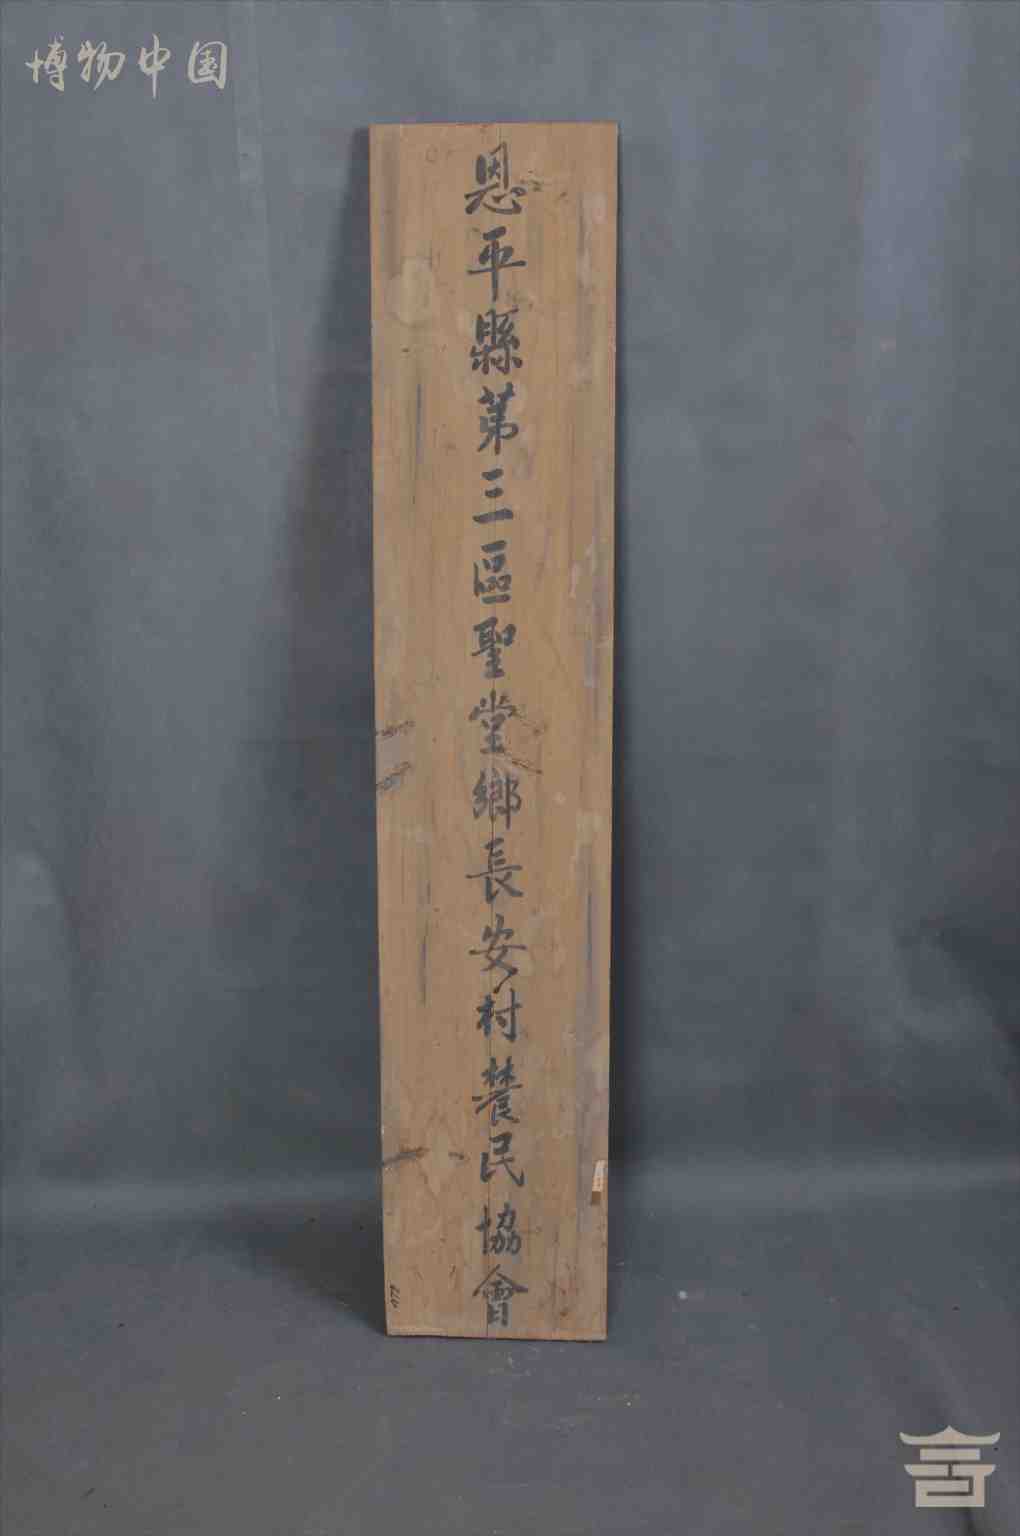 博物中国
恩平縣第三區聖堂鄉長安村農民協會